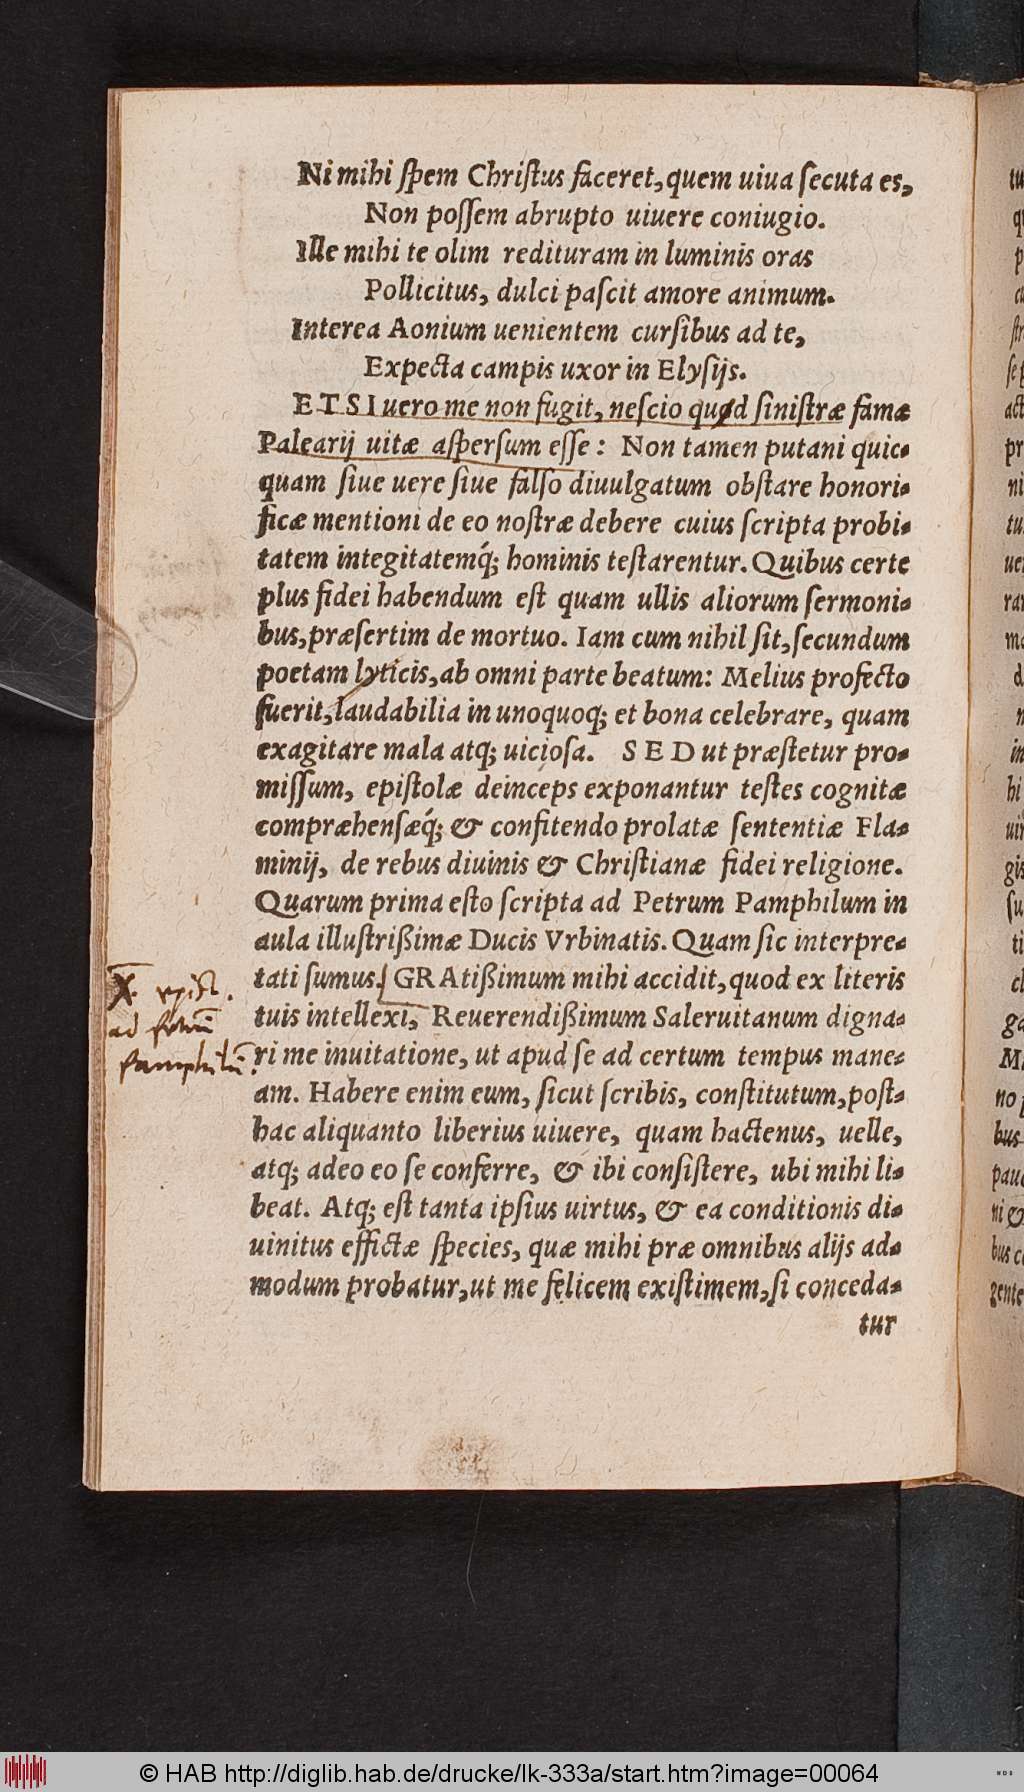 Ni mihi ſpem Chriſtus faceret, quem uiua ſecuta es,
Non poſſem abrupto uiuere coniugio.
Ille mihi te olim redituram in luminis oras
Pollicitus, dulci paſcit amore animum.
Interea Aonium uenientem curſibus ad te,
Expecta campis uxor in Elyſijs.
ETSI uero me non fugit, neſcio quod ſiniſtræ famæ
Palearij uitæ aſperſum eſſe: Non tamen putani quic-
quam ſiue uere ſiue falſo diuulgatum obſtare honori-
ficæ mentioni de eo noſtræ debere cuius ſcripta probi-
tatem integitatemq́; hominis teſtarentur. Quibus certe
plus fidei habendum eſt quam ullis aliorum ſermoni-
bus, præſertim de mortuo. Iam cum nihil ſit, ſecundum
poetam lyticis, ab omni parte beatum: Melius profecto
fuerit, laudabilia in unoquoq; et bona celebrare, quam
exagitare mala atq; uicioſa. SED ut præſtetur pro-
miſſum, epiſtolæ deinceps exponantur teſtes cognitæ
compræhenſæq́; & confitendo prolatæ ſententiæ Fla-
minij, de rebus diuinis & Chriſtianæ fidei religione.
Quarum prima eſto ſcripta ad Petrum Pamphilum in
aula illuſtrißimæ Ducis Vrbinatis. Quam ſic interpre-
tati ſumus. GRAtißimum mihi accidit, quod ex literis
tuis intellexi, Reuerendißimum Saleruitanum digna-
ri me inuitatione, ut apud ſe ad certum tempus mane-
am. Habere enim eum, ſicut ſcribis, conſtitutum, poſt-
hac aliquanto liberius uiuere, quam hactenus, uelle,
atq; adeo eo ſe conferre, & ibi conſiſtere, ubi mihi li-
beat. Atq; eſt tanta ipſius uirtus, & ea conditionis di-
uinitus effictæ ſpecies, quæ mihi præ omnibus alijs ad-
modum probatur, ut me felicem exiſtimem, ſi conceda-
tur
X. epist.
ad Petrū
Pamphilū.
© HAB http://diglib.hab.de/drucke/lk-333a/start.htm?image=00064